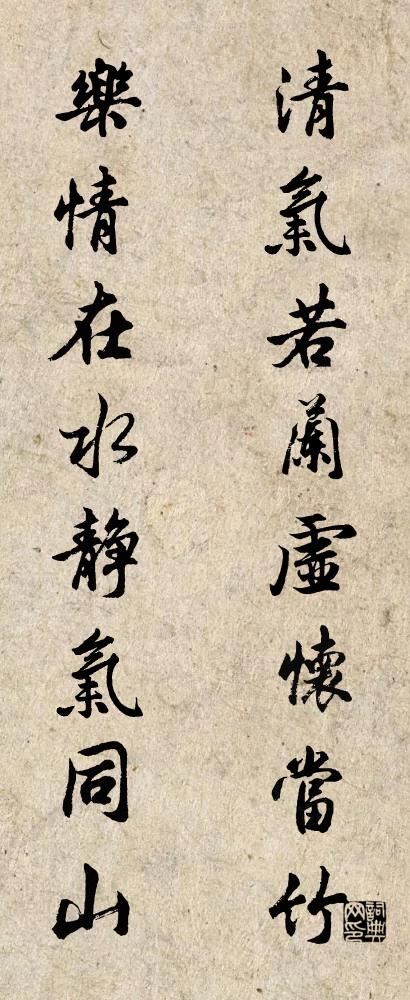 清氣若蘭虛懷當竹
樂情在水靜氣同山
詞典网印